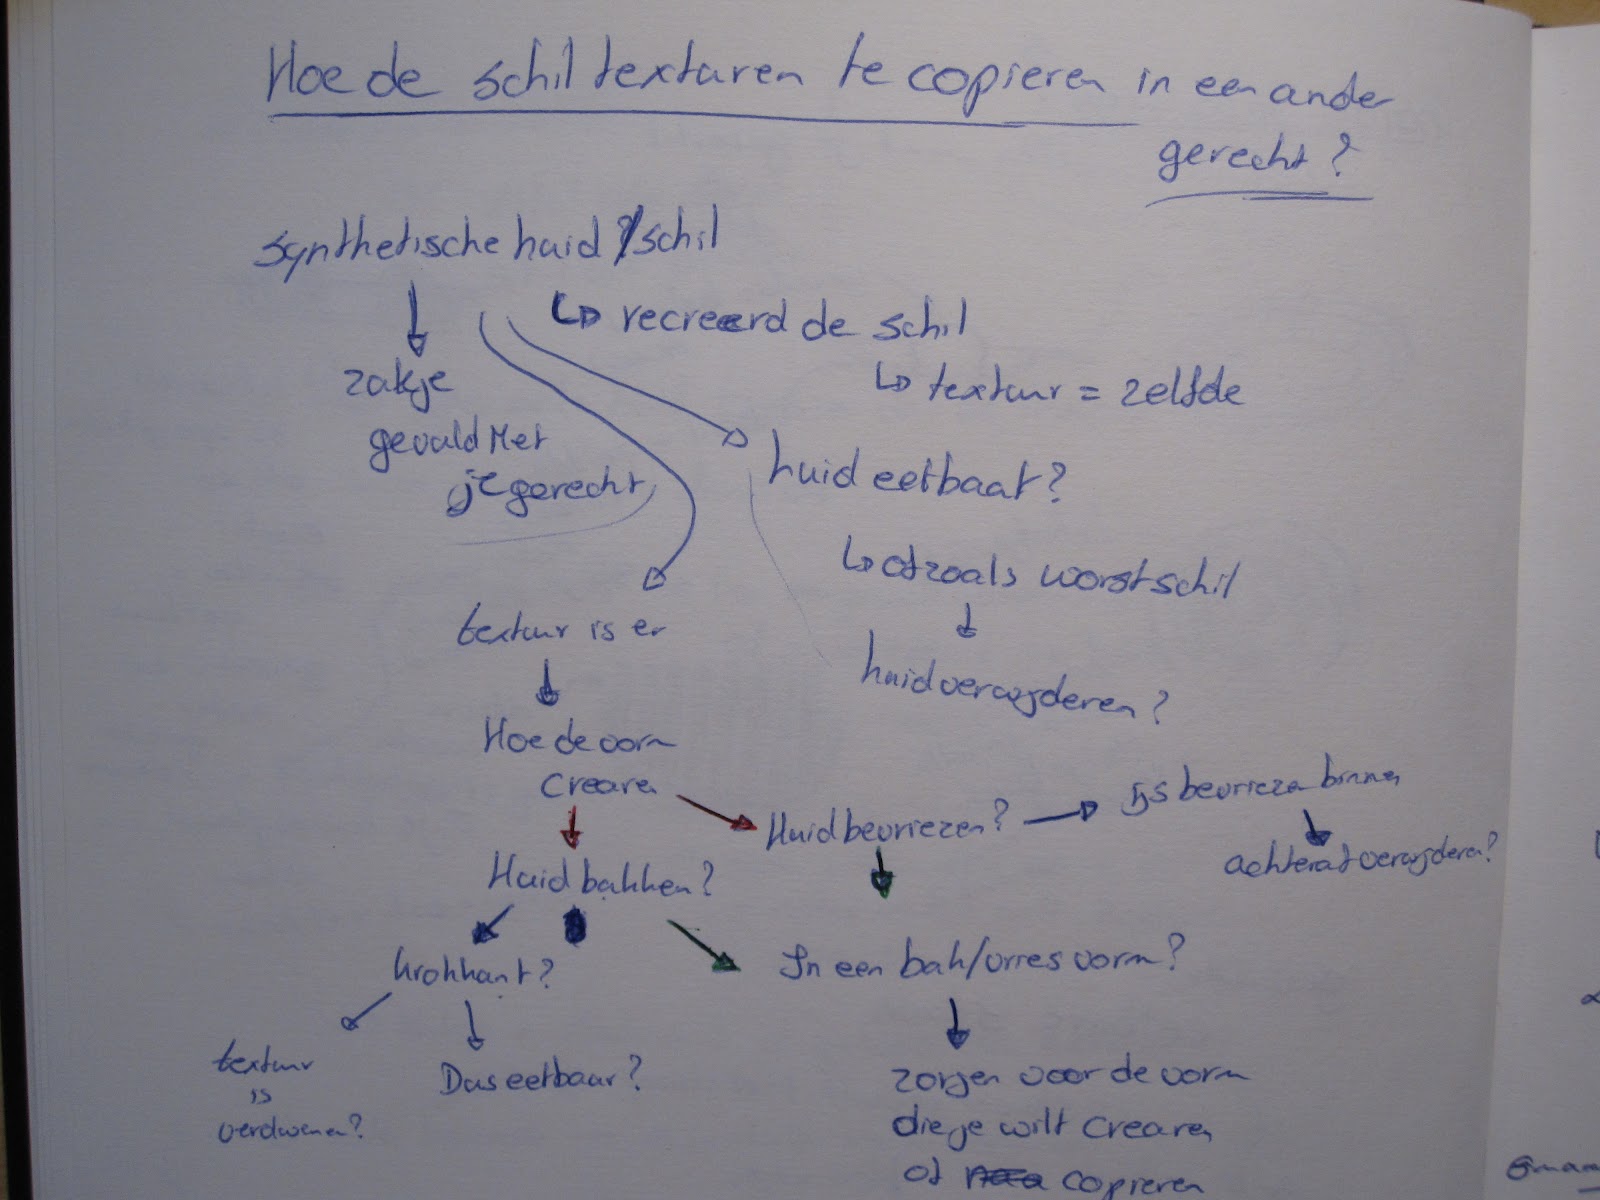 Hoe de schil texturen te copieren in een ander
gerecht?
synthetische huid/schil
↳ recreerd de schil
zakje
↳ textuur = zelfde
gevuld Met
je gerecht
huid eetbaar?
↳ of zoals worstschil
textuur is er
huid verwijderen?
Hoe de vorm
creëren
Huid bevriezen?
ijs bevriezen binnen
achteraf verwijderen?
Huid bakken?
krokkant?
In een bak/vries vorm?
textuur
is
verdwenen?
Dus eetbaar?
zorgen voor de vorm
die je wilt creëren
of copieren